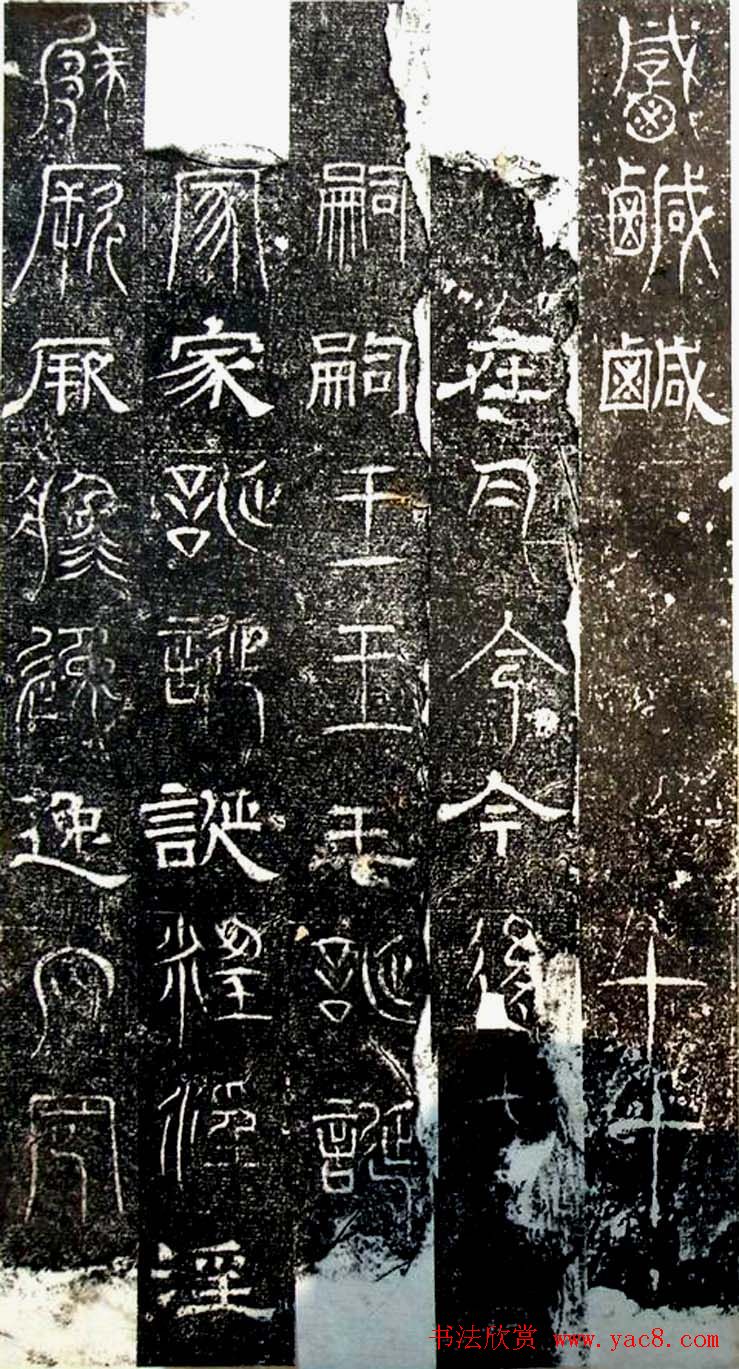 鹹鹹鹹十十
在今今今後
嗣嗣王王王誕誕
家家誕誕誕淫淫淫
厥厥厥逸逸逸罔罔
书法欣赏 www.yac8.com